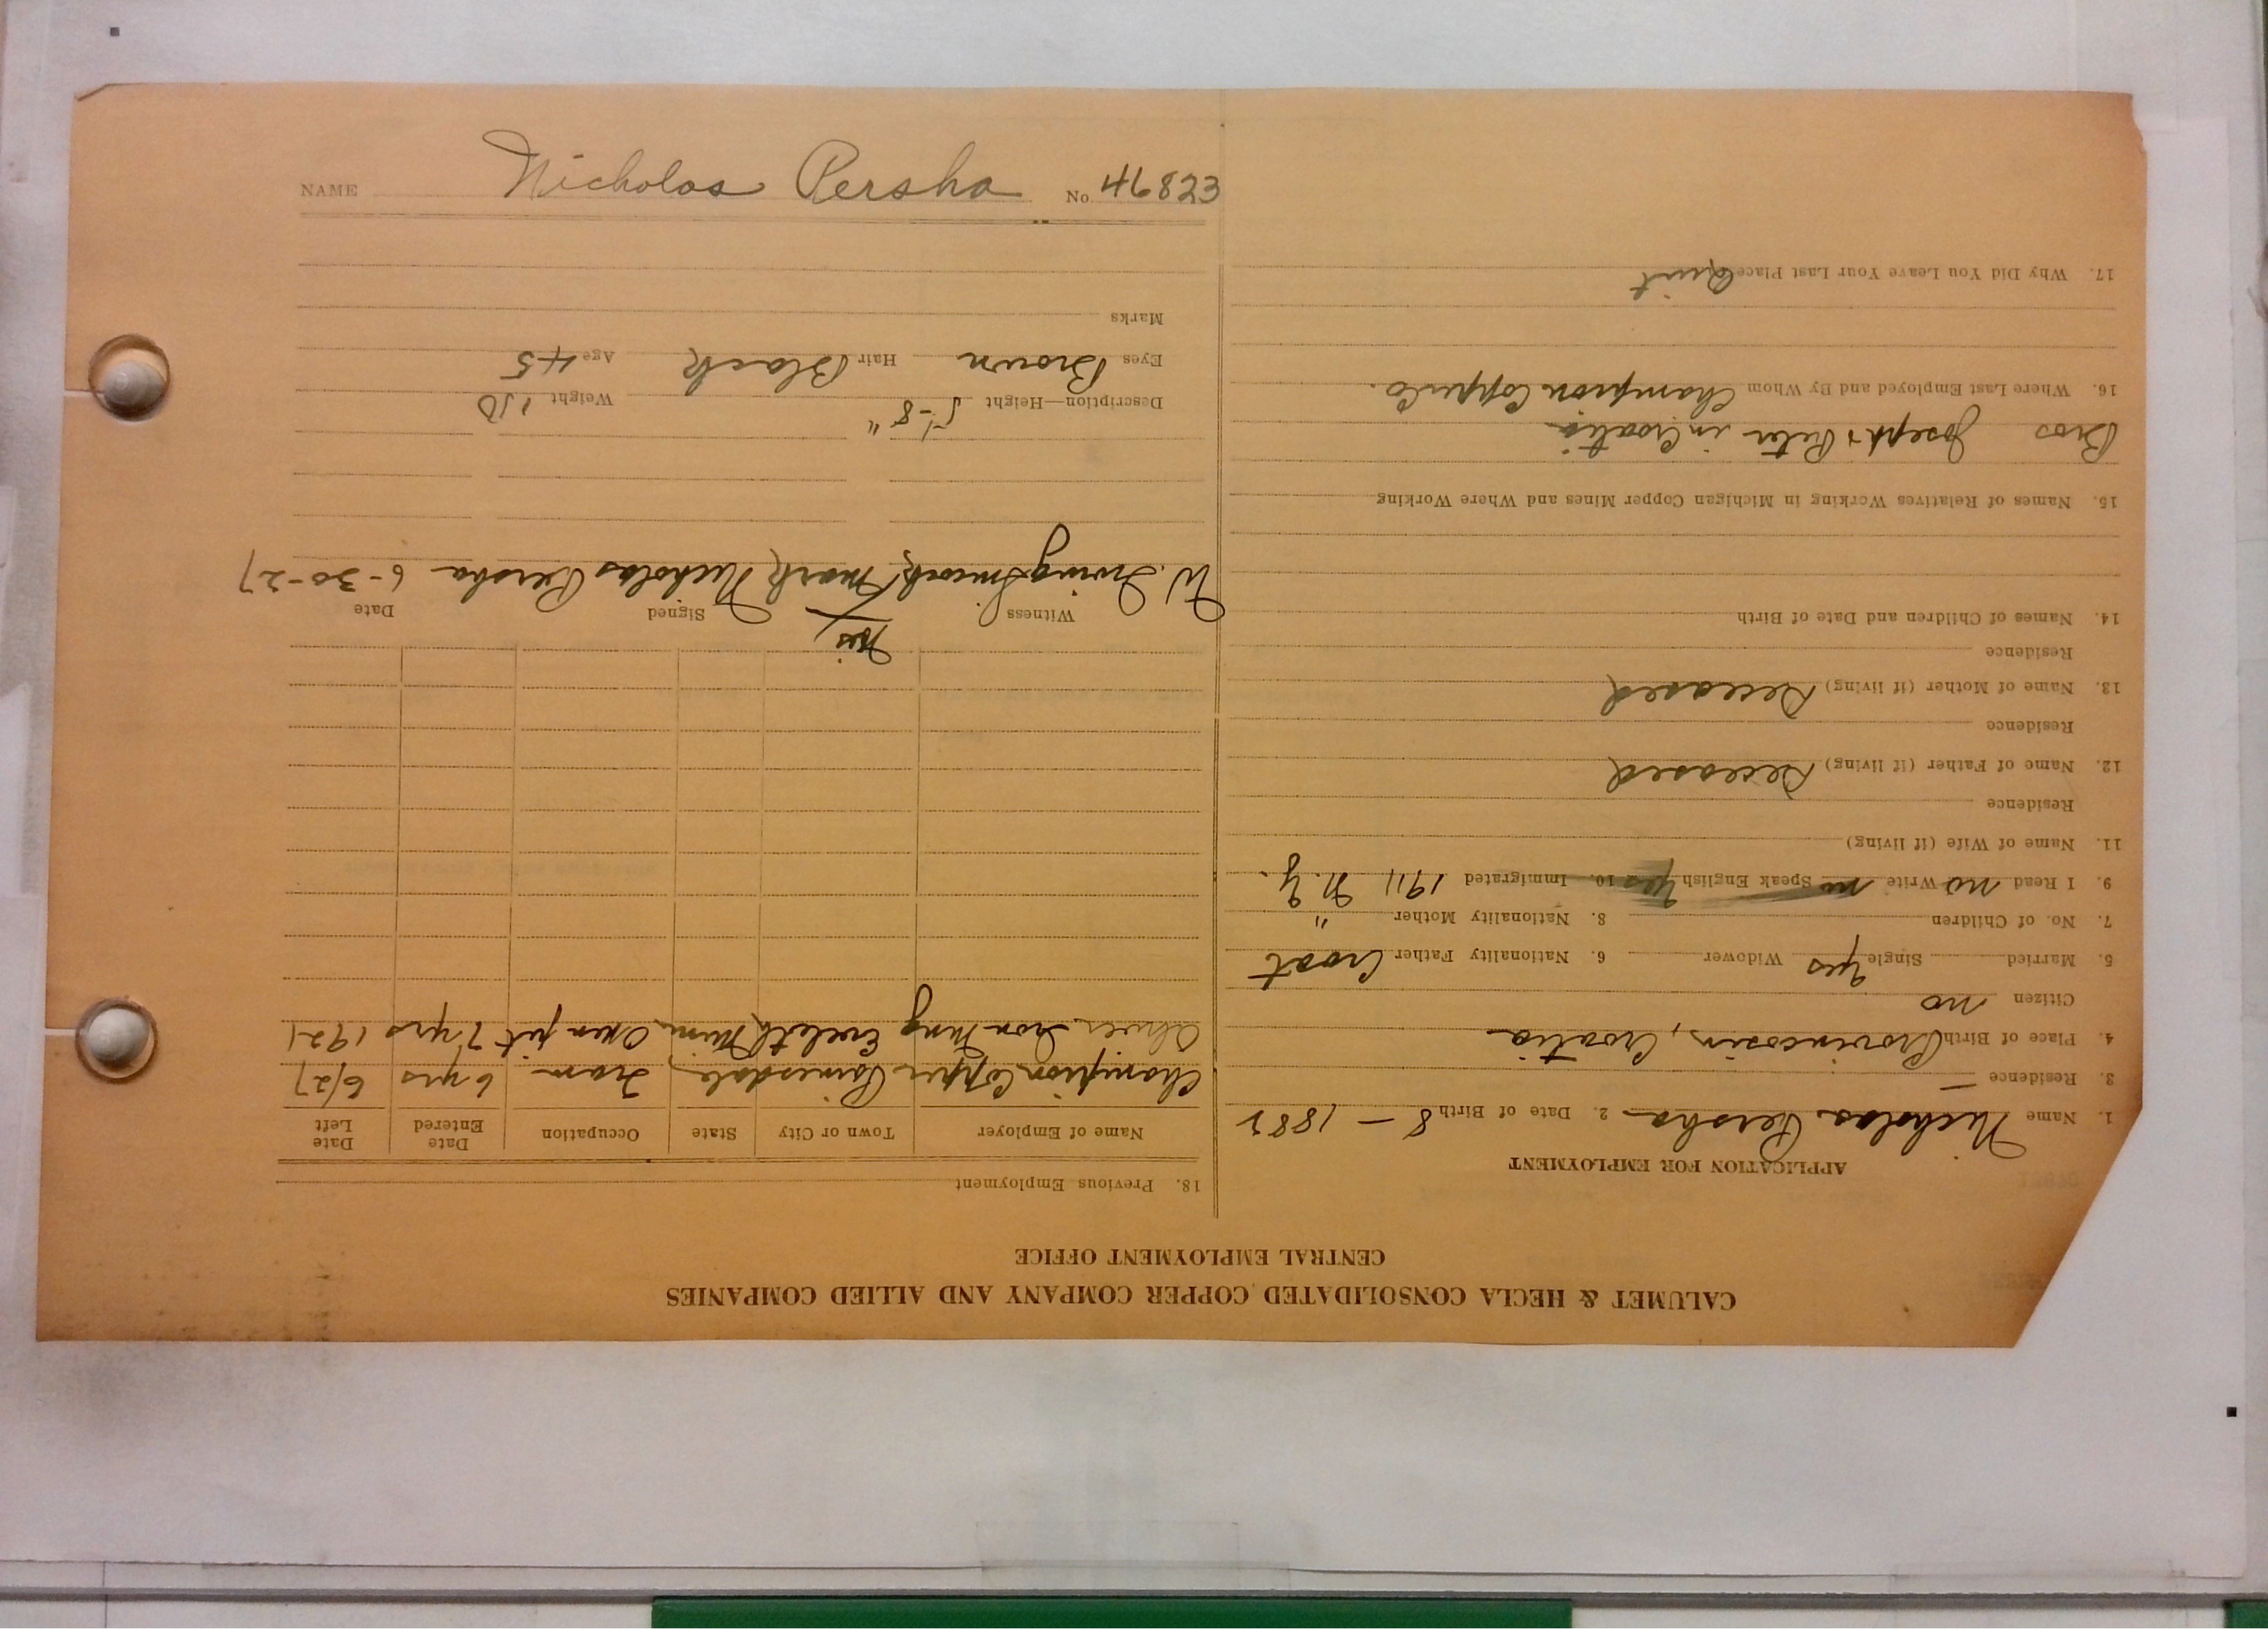 NAME Nicholas Persha No. 46823
CALUMET & HECLA CONSOLIDATED COPPER COMPANY AND ALLIED COMPANIES
CENTRAL EMPLOYMENT OFFICE
APPLICATION FOR EMPLOYMENT
1. Name Nicholas Persha 2. Date of Birth 8 - 1882
3. Residence —
4. Place of Birth Croatia
Citizen no
5. Married Single yes Widower 6. Nationality Father Croat
7. No. of Children 8. Nationality Mother "
9. I Read no Write no Speak English yes 10. Immigrated 1911 N.Y.
11. Name of Wife (if living)
Residence
12. Name of Father (if living) Deceased
Residence
13. Name of Mother (if living) Deceased
Residence
14. Names of Children and Date of Birth
15. Names of Relatives Working in Michigan Copper Mines and Where Working
Bros Joseph & Peter in Croatia
16. Where Last Employed and By Whom Champion Copper Co.
17. Why Did You Leave Your Last Place Quit
18. Previous Employment
Name of Employer Town or City State Occupation Date Entered Date Left
Champion Copper Painesdale Tram 6 yrs 6/27
Oliver Iron Mng Eveleth, Minn Open pit 7 yrs 1921
his
Witness Signed Date
W. Irving mark Nicholas Persha 6-30-27
Description—Height 5'-8" Weight 150
Eyes Brown Hair Black Age 45
Marks